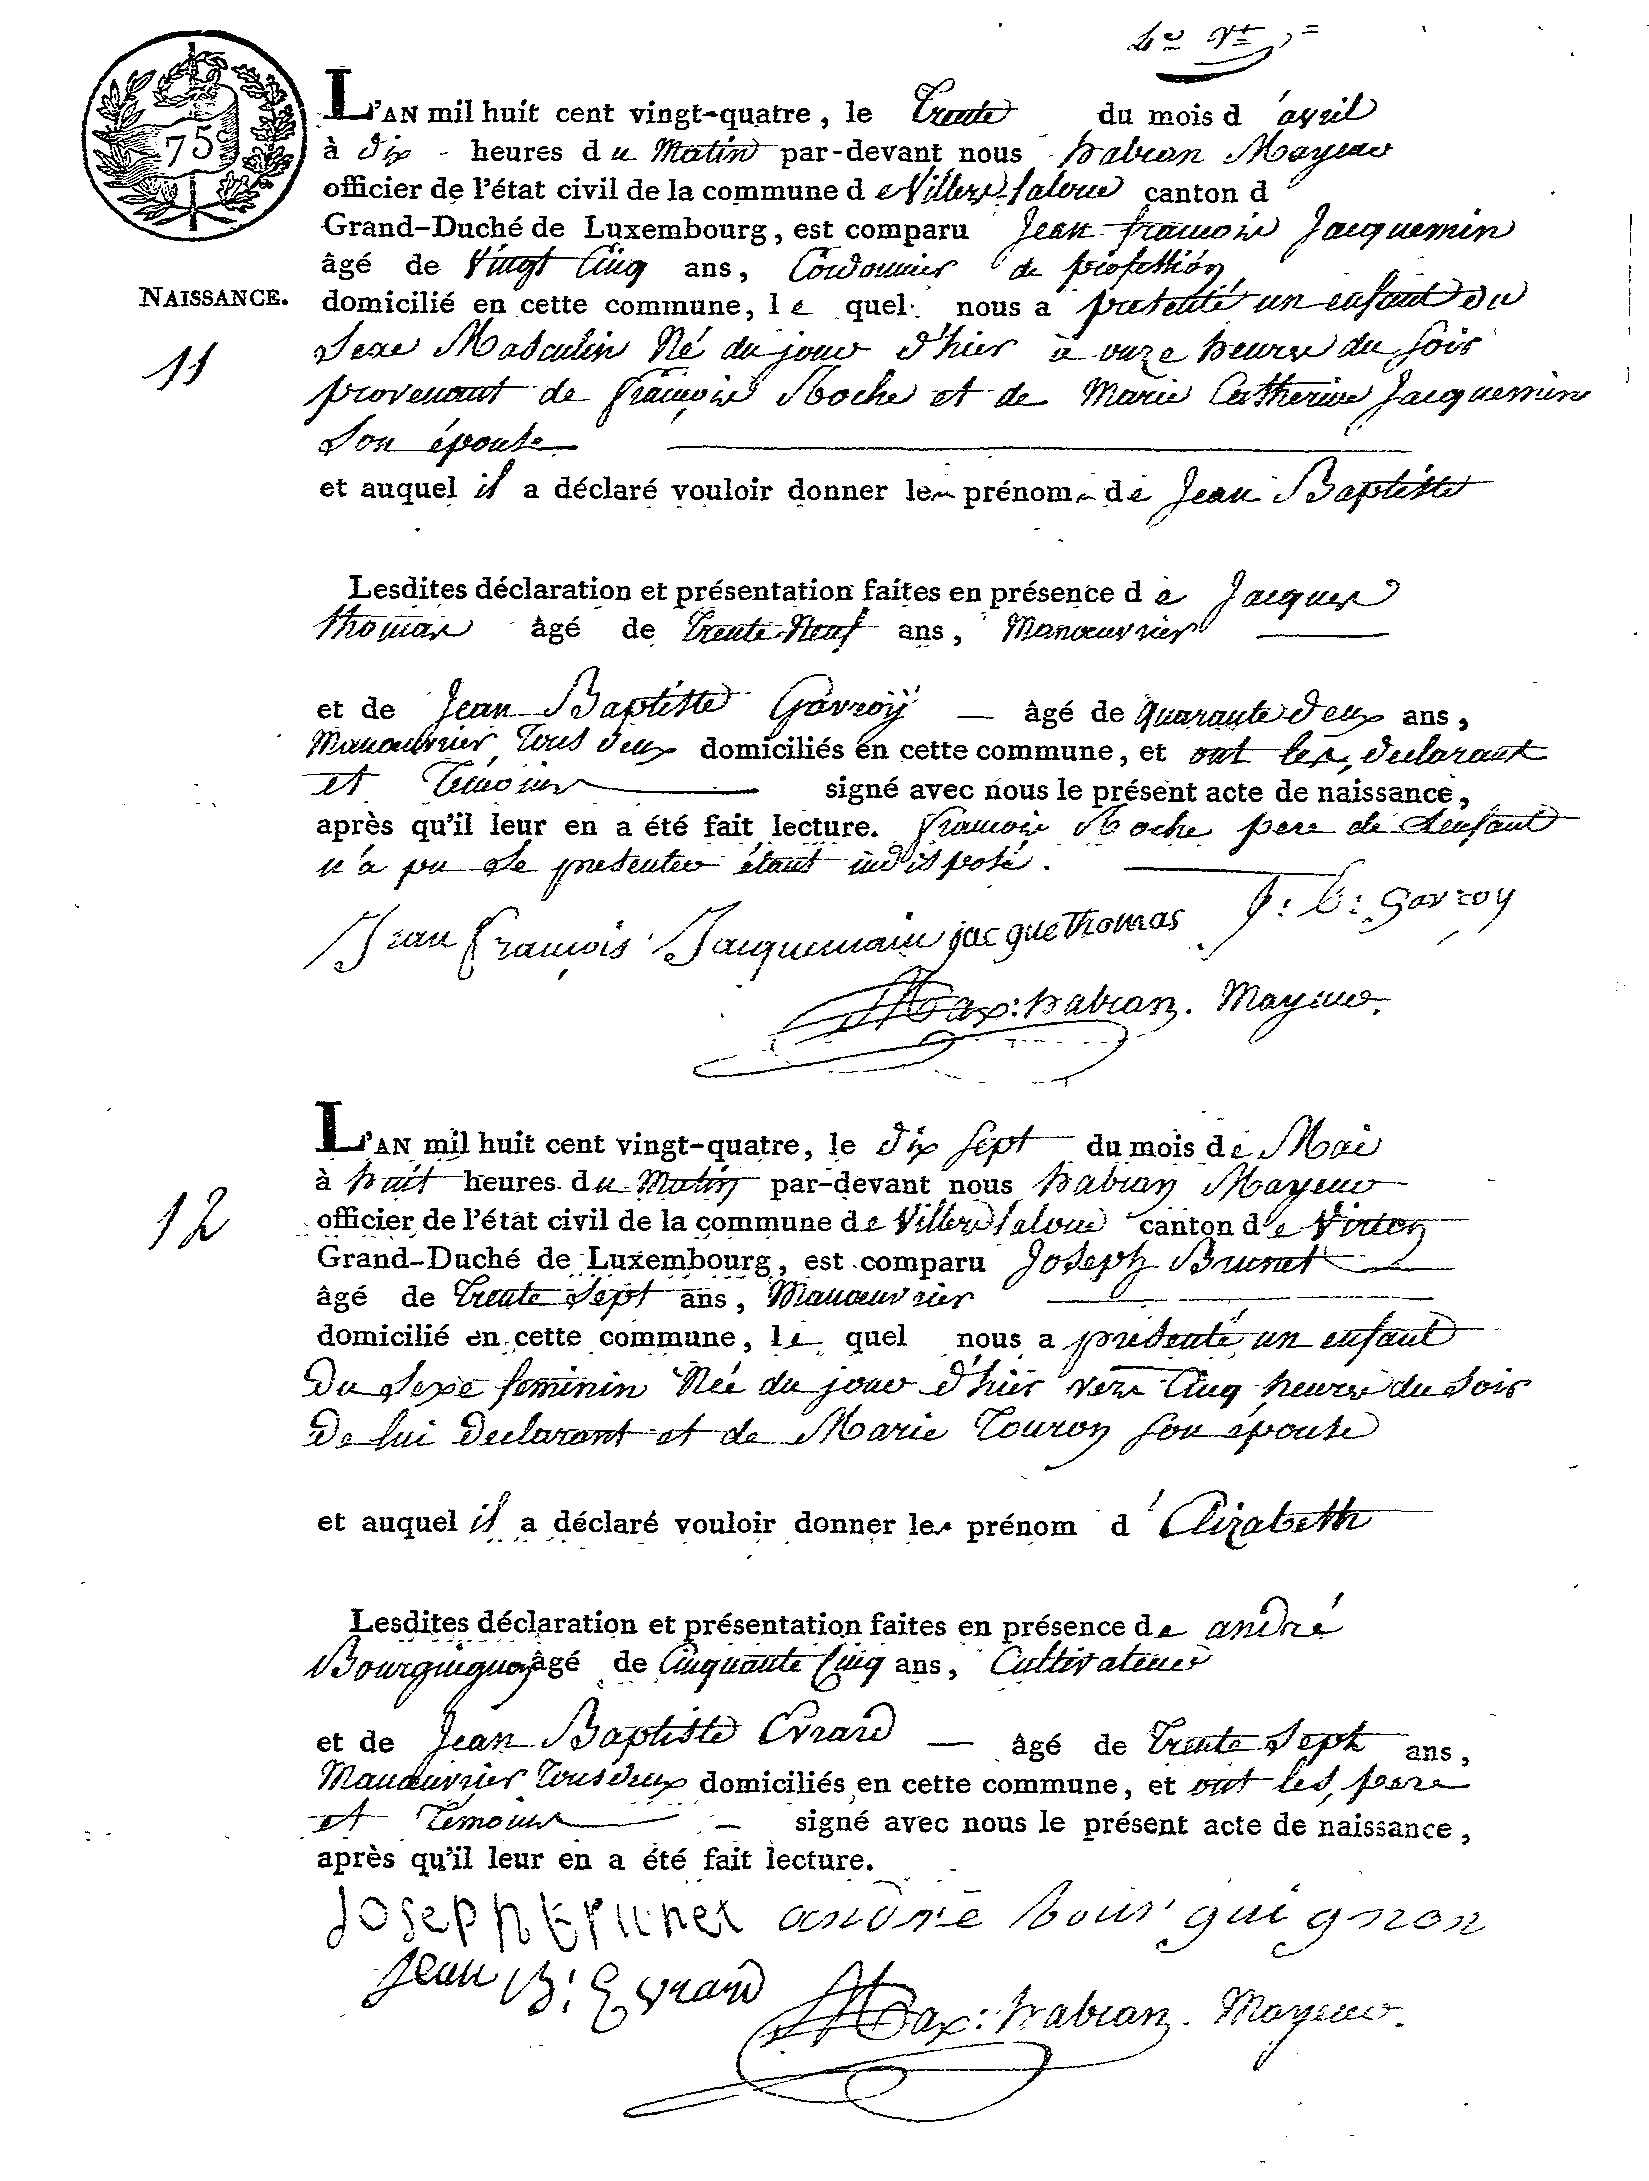 4e Vte
75
L'AN mil huit cent vingt-quatre, le Trente du mois d'avril
à dix heures du Matin par-devant nous habran Mayeur
officier de l'état civil de la commune de Villers Laloue canton d
Grand-Duché de Luxembourg, est comparu Jean françois Jacquemin
âgé de Vingt Cinq ans, Cordonnier de profession
NAISSANCE.
domicilié en cette commune, le quel nous a presenté un enfant du
11
Sexe Masculin Né du jour d'hier à onze heures du soir
provenant de françois Roche et de Marie Catherine Jacquemin
Son épouse
et auquel il a déclaré vouloir donner le prénom de Jean Baptiste
Lesdites déclaration et présentation faites en présence de Jacques
thomas âgé de Trente Neuf ans, Manœuvrier
et de Jean Baptiste Gavroÿ — âgé de quarante deux ans,
Manœuvrier, Tous deux domiciliés en cette commune, et ont les, declarant
et Témoins signé avec nous le présent acte de naissance,
après qu'il leur en a été fait lecture. françois Roche pere de Lenfant
n'a pu Se presenter étant indisposé.
Jean François Jacquemain jacque Thomas J: b: gavroy
Max: habran. Mayeur.
L'AN mil huit cent vingt-quatre, le dix sept du mois de Mai
à huit heures du Matin par-devant nous habran Mayeur
12
officier de l'état civil de la commune de Villers Laloue canton de Virton
Grand-Duché de Luxembourg, est comparu Joseph Brunet
âgé de Trente Sept ans, Manœuvrier
domicilié en cette commune, le quel nous a presenté un enfant
Du Sexe feminin Née du jour d'hier vers Cinq heures du Soir
De lui Declarant et de Marie Touron Son épouse
et auquel il a déclaré vouloir donner le prénom d'Elizabeth
Lesdites déclaration et présentation faites en présence de andré
Bourguignon âgé de Cinquante Cinq ans, Cultivateur
et de Jean Baptiste Evrard — âgé de Trente Sept ans,
Manœuvrier Tous deux domiciliés en cette commune, et ont les, pere
et Temoins — signé avec nous le présent acte de naissance,
après qu'il leur en a été fait lecture.
Joseph brunet andrè bourguignon
Jean B: Evrard
Max: habran. Mayeur.